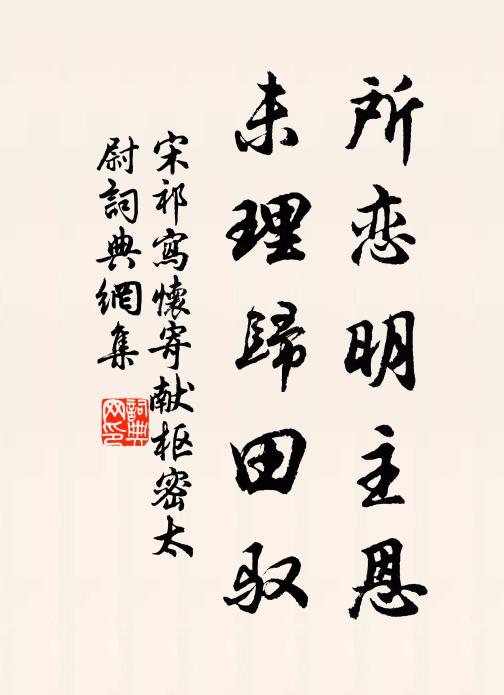 所恋明主恩
未理歸田馭
宋祁寫懷寄献枢密太
尉詞典網集
詞典
网印